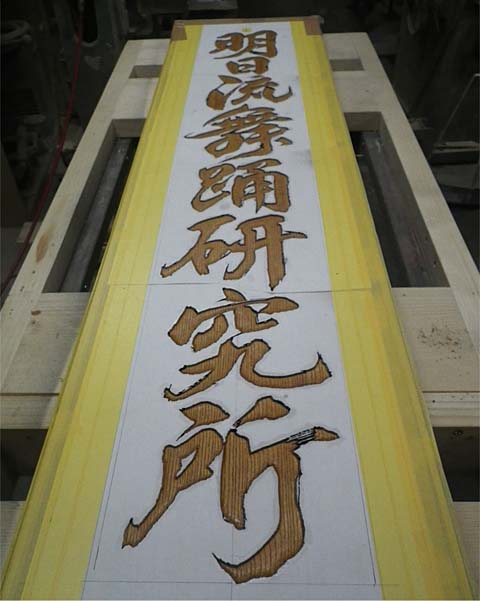 明日流舞踊研究所